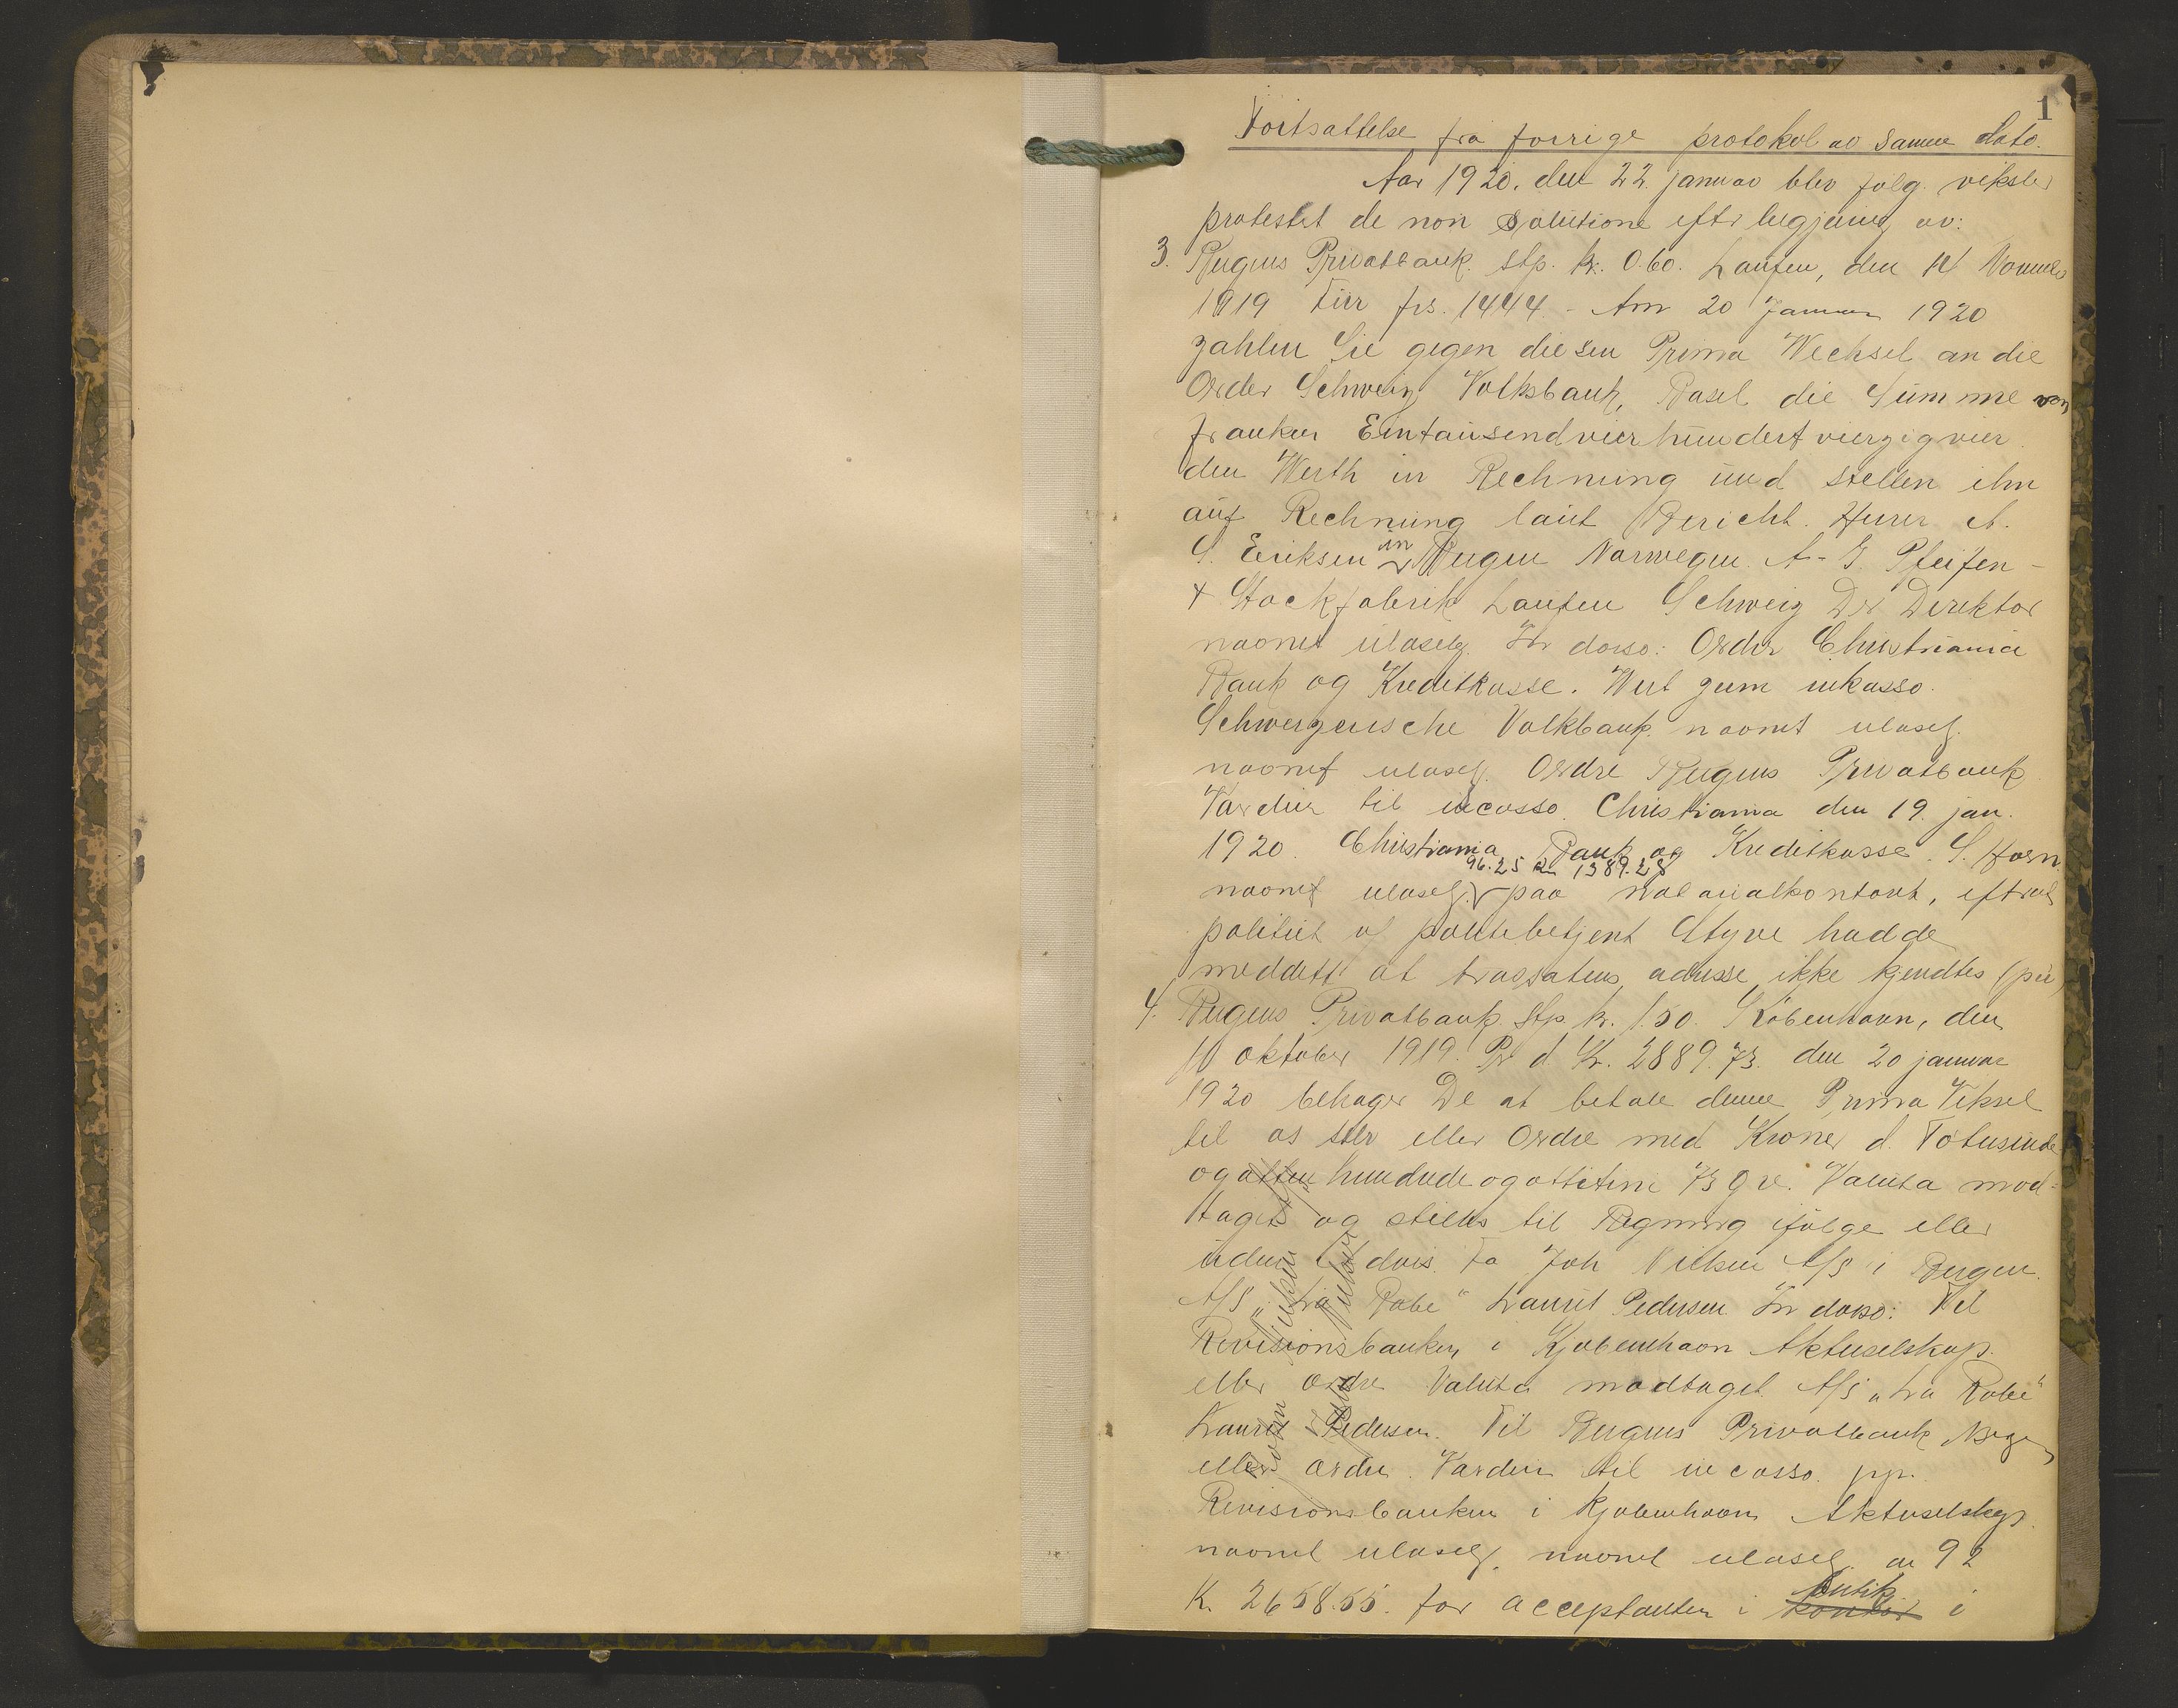 1
Fortsattelse fra forrige protokol av samme dato.
Aar 1920. den 22. januar blev følg. veksler
protestet de non solutione efter begjæring av:
3. Bergens Privatbank. Stp. kr. 0.60. Laufen, den 14 November
1919 Für frs. 1444.- Am 20 Januar 1920
zahlen Sie gegen diesen Prima Wechsel an die
Order Schweiz Volksbank, Basel die Summe von
franken Eintausendvierhundertvierzigvier
den Werth in Rechnung und stellen ihn
auf Rechnung laut Bericht. Herrn A.
S. Eriksen in Bergen Norwegen. A-G. Pfeifen-
+ Stockfabrik Laufen Schweiz Der Direktor
navnet ulæselg. In dorso: Order Christiania
Bank og Kreditkasse. Wert zum inkasso.
Schweizerische Volkbank. navnet ulæselg.
navnet ulæselg. Ordre Bergens Privatbank
Værdien til incasso. Christiania den 19. jan.
1920. Christiania Bank og Kreditkasse. S. Horn
96.25 kr 1389.28
navnet ulæselg. paa notarialkontoret, efterat
politiet v/ politibetjent Styve hadde
meddelt at trassatens adresse ikke kjendtes
4. Bergens Privatbank Stp. kr. 1.50. København, den
10 oktober 1919. Pr d Kr. 2889.73. den 20 januar
1920 behager De at betale denne Prima Veksel
til os selv eller Ordre med Kroner d. Totusinde
ogottehundredeogottitini 73 Øre. Valuta mod-
taget og stilles til Regning ifølge eller
uden Advis. Fa Joh Nielsen A/S i Bergen.
A/S "La Robe" Laurit Pedersen In dorso: Til
Revisionsbanken i Kjøbenhavn Aktieselskap.
eller ordre Valuta modtaget. A/S "La Robe"
Laurit Pedersen. Til Bergens Privatbank Bergen
eller ordre. Værdien til incasso. pp.
Revisionsbanken i Kjøbenhavn Aktieselskap.
navnet ulæselg. navnet ulæselg. a 92
butik
K. 2658.55. for acceptanten i kontor i